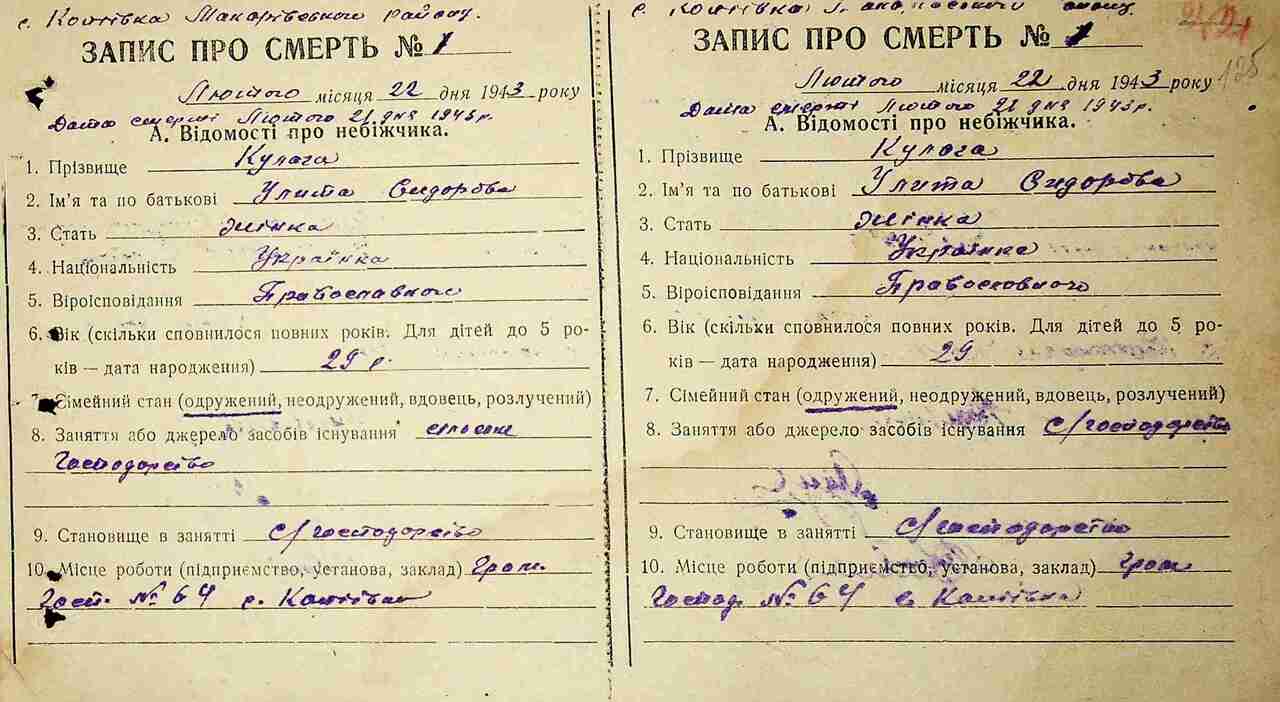 с. Коптівка Макарівського району.
ЗАПИС ПРО СМЕРТЬ № 1
Лютого місяця 22 дня 1943 року
Дата смерті Лютого 21 дня 1943 р.
А. Відомості про небіжчика.
1. Прізвище Кулага
2. Ім'я та по батькові Улита Сидорова
3. Стать жінка
4. Національність Українка
5. Віроісповідання Православного
6. Вік (скільки сповнилося повних років. Для дітей до 5 ро-
ків — дата народження) 29 р.
7. Сімейний стан (одружений, неодружений, вдовець, розлучений)
8. Заняття або джерело засобів існування сільське
Господорство
9. Становище в занятті С/господорство
10. Місце роботи (підприємство, установа, заклад) Гром.
Госп. № 64 с.
с. району.
ЗАПИС ПРО СМЕРТЬ № 1
Лютого місяця 22 дня 1943 року
Дата смерті Лютого 21 дня 1943 р.
А. Відомості про небіжчика.
1. Прізвище Кулага
2. Ім'я та по батькові Улита Сидорова
3. Стать жінка
4. Національність Українка
5. Віроісповідання Православного
6. Вік (скільки сповнилося повних років. Для дітей до 5 ро-
ків — дата народження) 29
7. Сімейний стан (одружений, неодружений, вдовець, розлучений)
8. Заняття або джерело засобів існування С/господорство
9. Становище в занятті С/господорство
10. Місце роботи (підприємство, установа, заклад) Гром.
Господ. № 64 с.